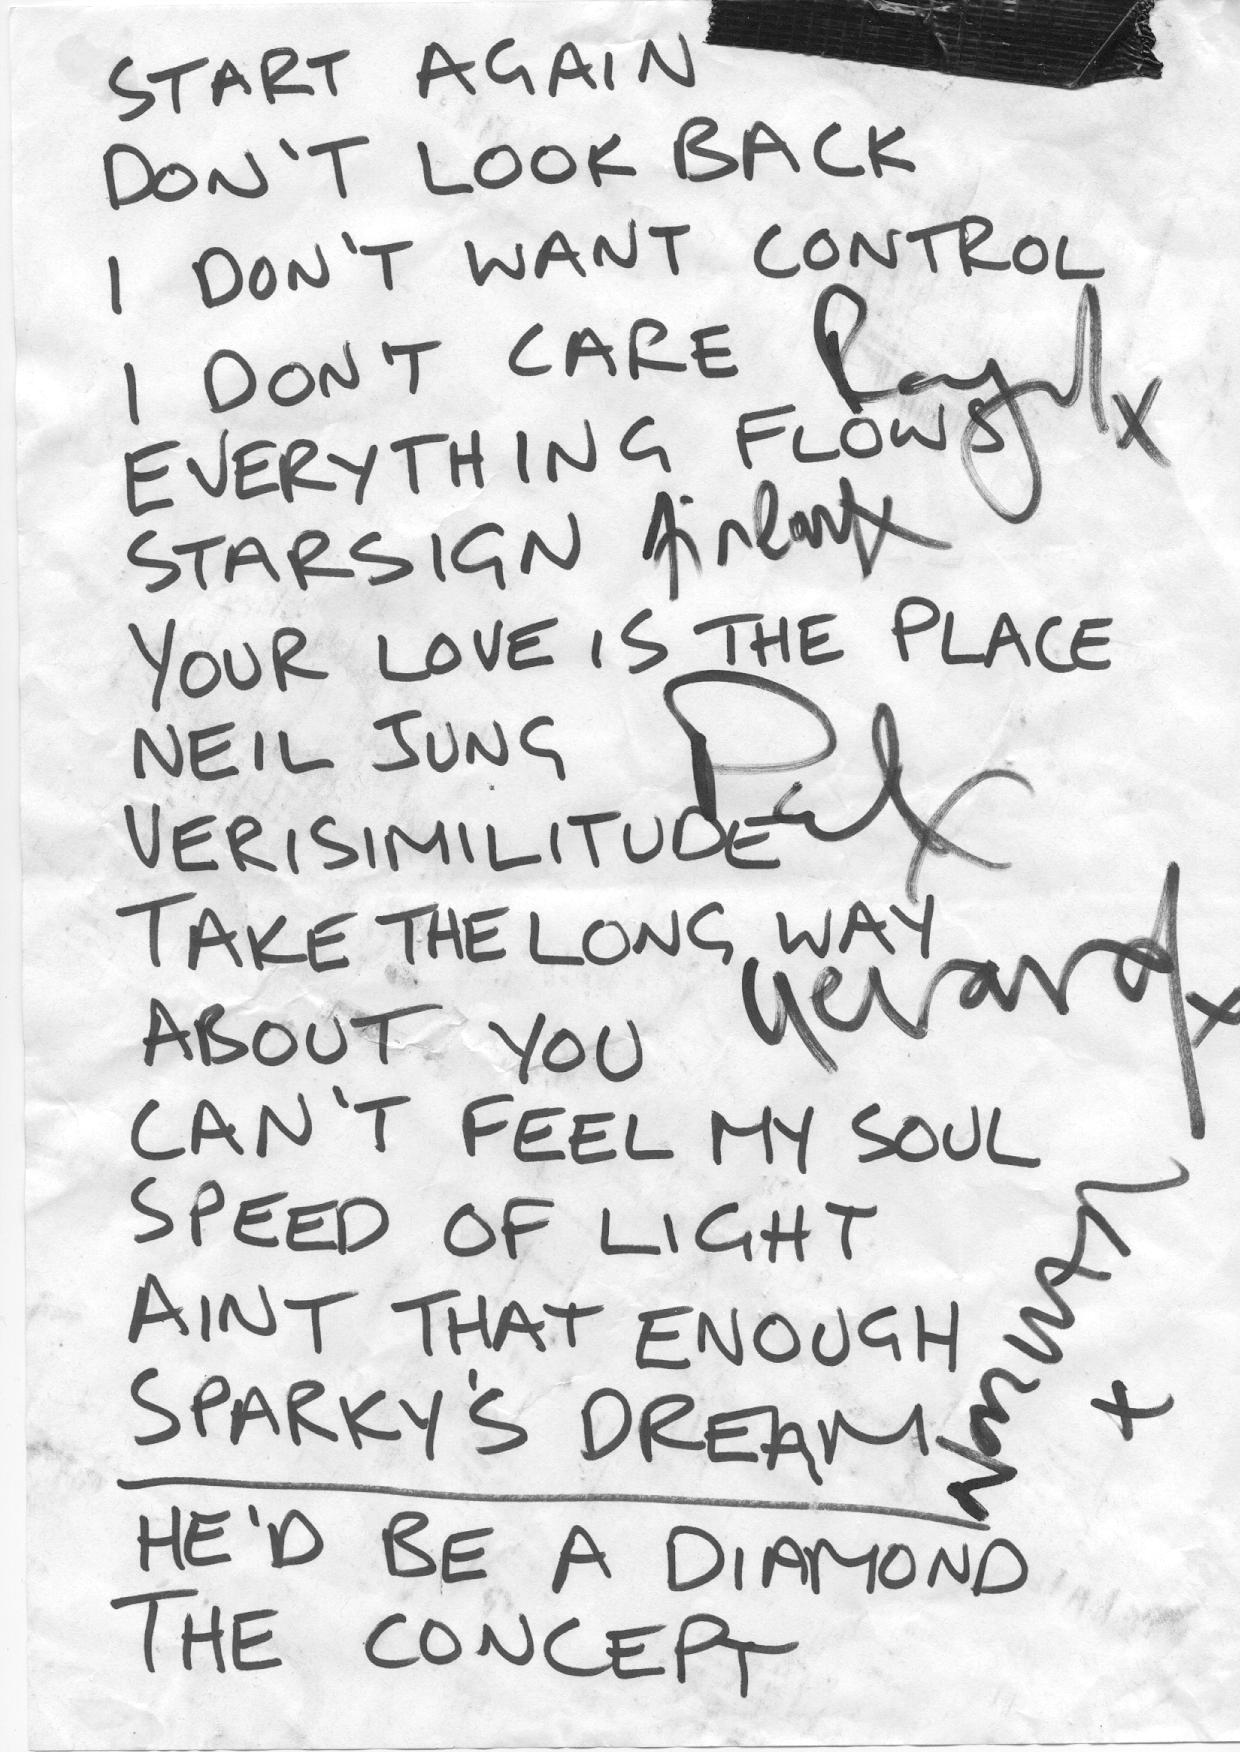 START AGAIN
DON'T LOOK BACK
I DON'T WANT CONTROL
I DON'T CARE
EVERYTHING FLOWS
STARSIGN
YOUR LOVE IS THE PLACE
NEIL JUNG
Paul x
VERISIMILITUDE
TAKE THE LONG WAY
Gerard x
ABOUT YOU
CAN'T FEEL MY SOUL
SPEED OF LIGHT
AINT THAT ENOUGH
SPARKY'S DREAM
Norman x
HE'D BE A DIAMOND
THE CONCEPT